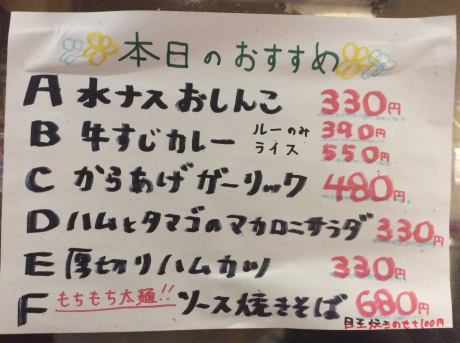 本日のおすすめ
A 水ナスおしんこ 330円
B 牛すじカレー ルーのみ 390円
ライス 550円
C からあげガーリック 480円
D ハムとタマゴのマカロニサラダ 330円
E 厚切りハムカツ 330円
F もちもち太麺!! ソース焼きそば 680円
目玉焼きのせ+100円